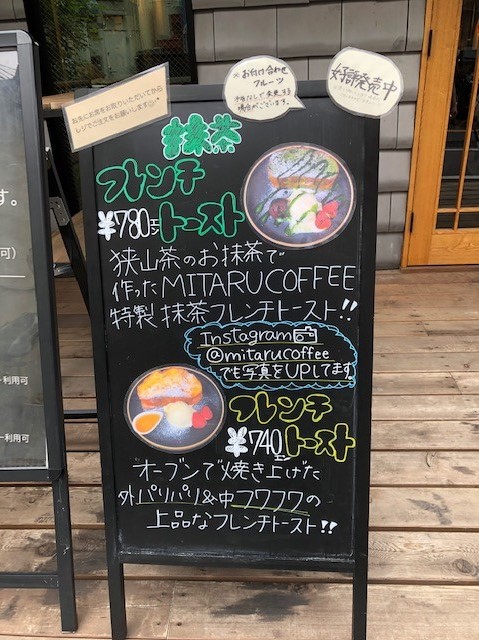 お先にお席をお取りいただいてから
レジでご注文をお願いします
※お付け合わせ
フルーツ
予告なしで変更する
場合がございます。
好評発売中
抹茶
フレンチ
トースト
¥780
狭山茶のお抹茶で
作ったMITARU COFFEE
特製 抹茶フレンチトースト!!
Instagram
@mitarucoffee
でも写真をUPしてます
フレンチ
トースト
¥740
オーブンで焼き上げた
外パリパリ&中フワフワの
上品なフレンチトースト!!
す。
可)
ー利用可
ー利用可